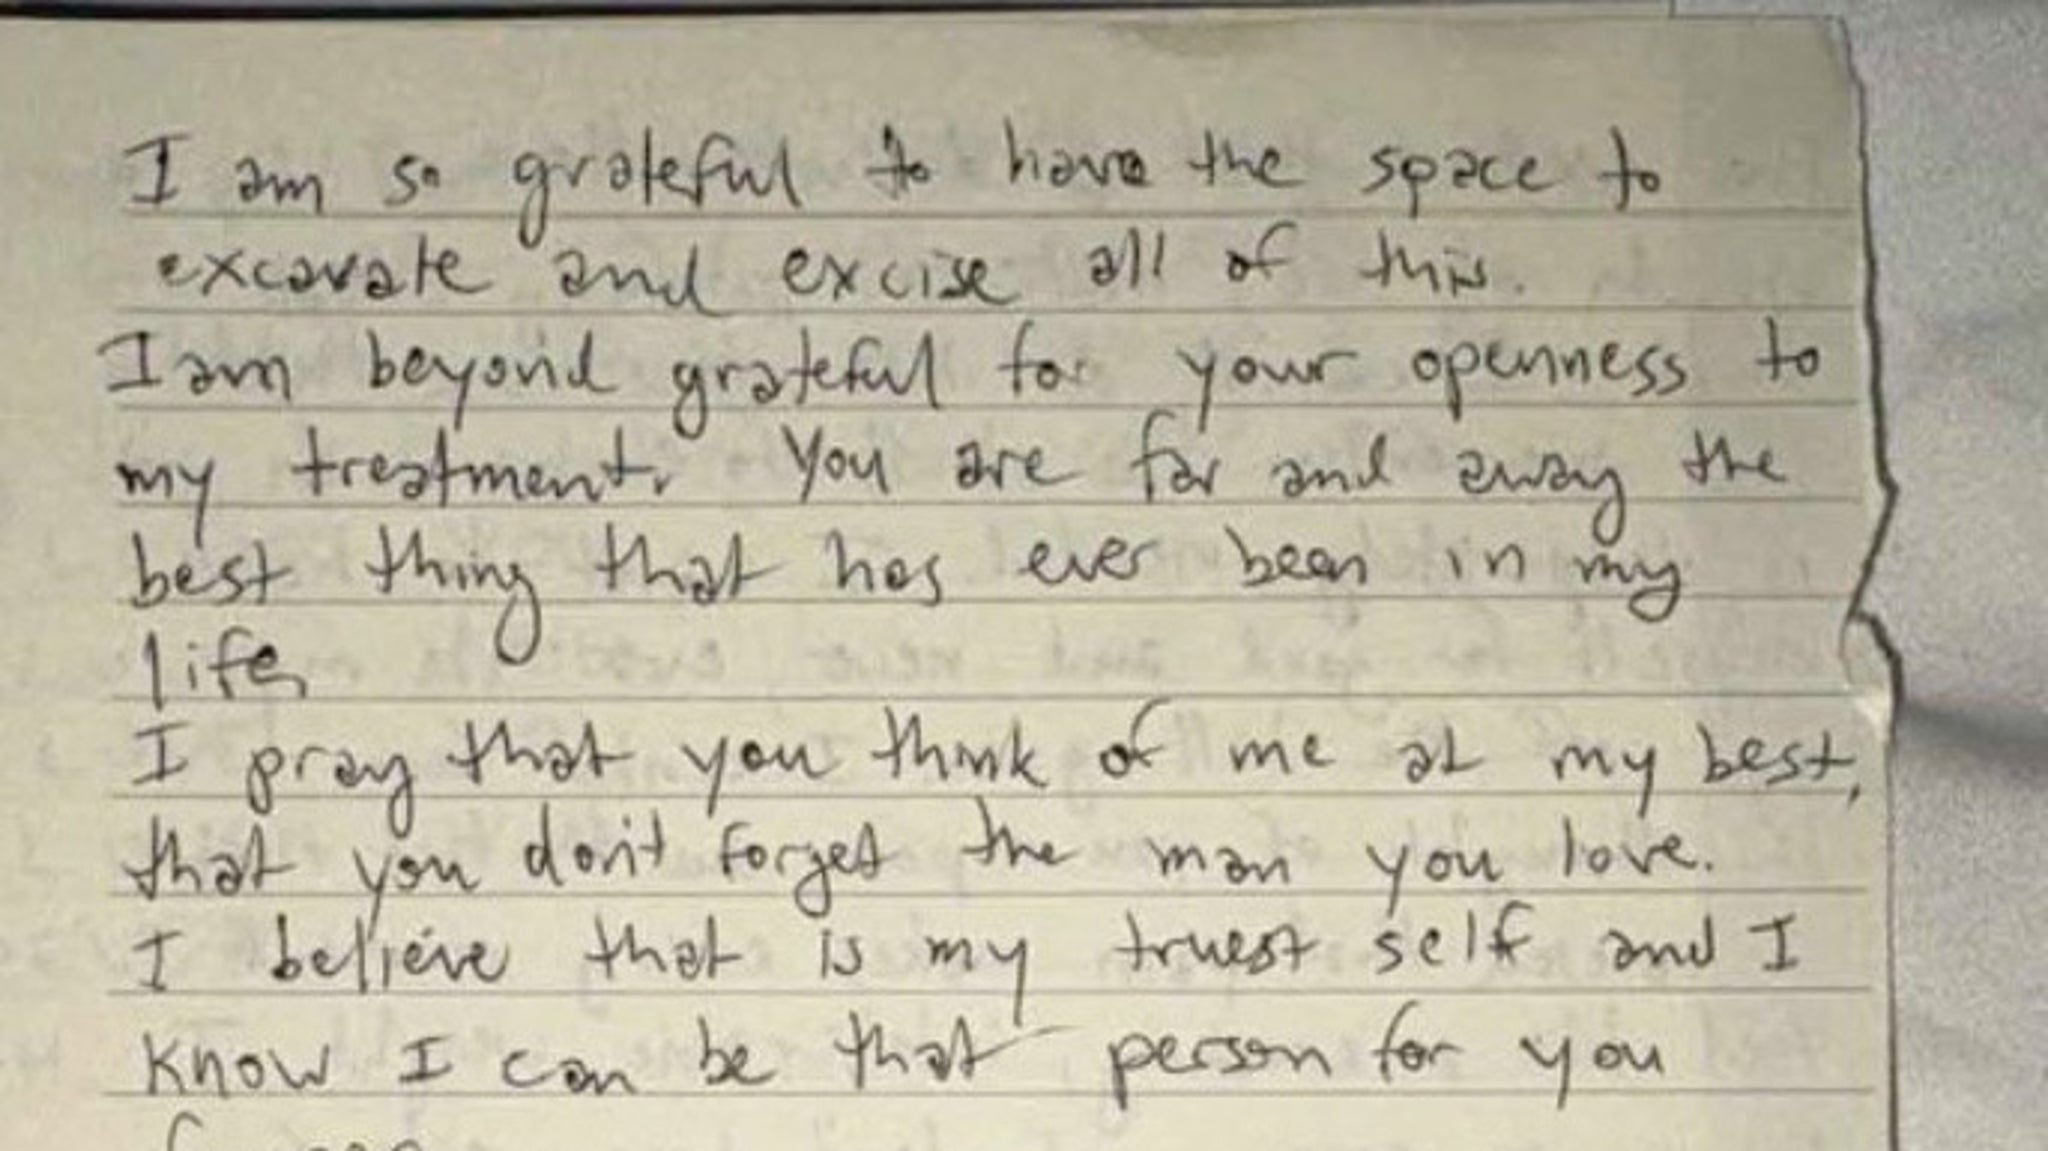 I am so grateful to have the space to
excavate and excise all of this.
I am beyond grateful for your openness to
my treatment. You are far and away the
best thing that has ever been in my
life.
I pray that you think of me at my best,
that you don't forget the man you love.
I believe that is my truest self and I
know I can be that person for you